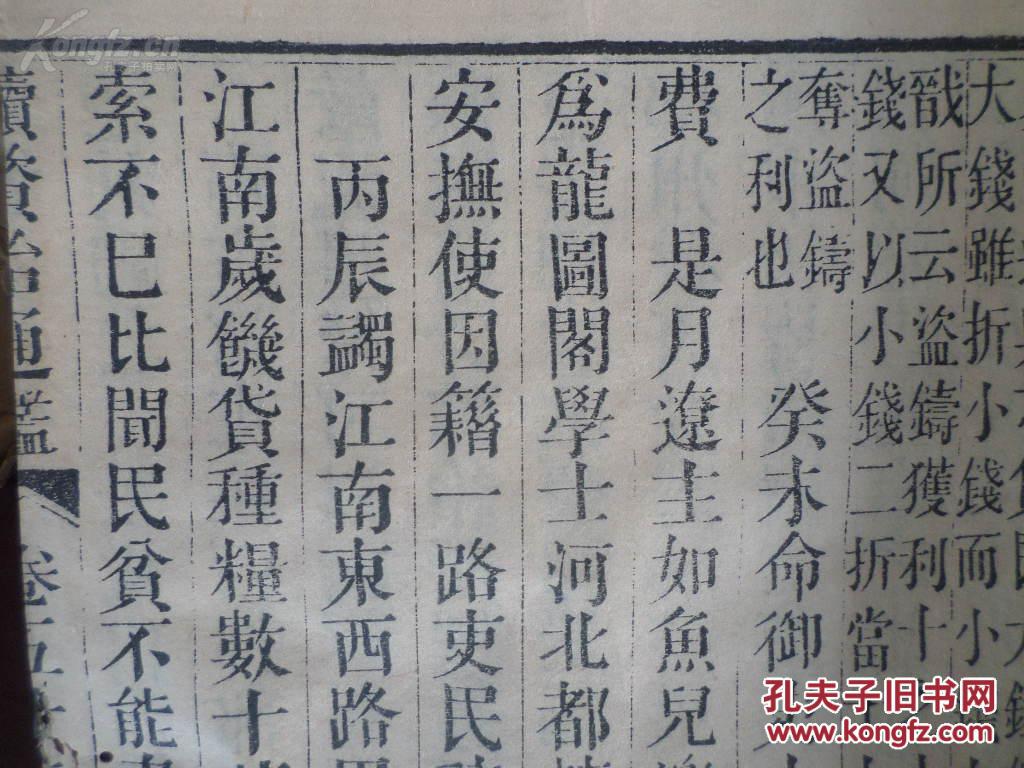 大錢雖折小錢而小
戩所云盜鑄獲利十
錢又以小錢二折當十
奪盜鑄
之利也
癸未命御
費 是月遼主如魚兒
為龍圖閣學士河北都
安撫使因籍一路吏民
丙辰蠲江南東西路
江南歲饑貸種糧數十
索不已比聞民貧不能
續資治通鑑 卷五
Kongfz.cn
孔夫子旧书网
www.kongfz.com